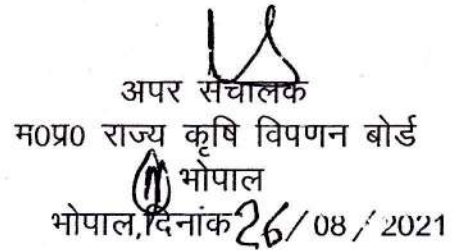 अपर संचालक
म0प्र0 राज्य कृषि विपणन बोर्ड
भोपाल
भोपाल,दिनांक 26/08/2021